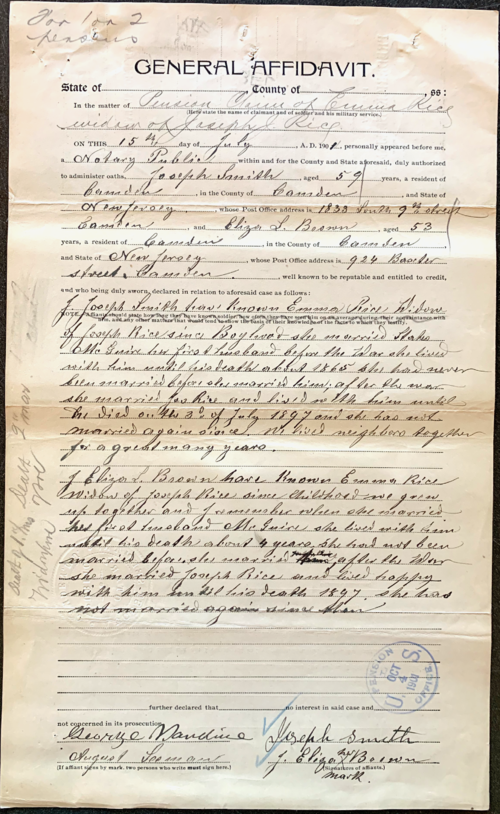 For 1 or 2
pensions
GENERAL AFFIDAVIT.
State of , County of , ss:
In the matter of Pension Claim of Emma Rice
(Here state the name of claimant and of soldier and his military service.)
widow of Joseph Rice
ON THIS 15th day of July A. D. 1901, personally appeared before me,
a Notary Public within and for the County and State aforesaid, duly authorized
to administer oaths, Joseph Smith, aged 59 years, a resident of
Camden, in the County of Camden and State of
New Jersey, whose Post Office address is 1833 South 9th street
Camden, and Eliza L. Brown, aged 53
years, a resident of Camden, in the County of Camden
and State of New Jersey, whose Post Office address is 924 Baxter
street, Camden, well known to be reputable and entitled to credit,
and who being duly sworn, declared in relation to aforesaid case as follows:
I Joseph Smith have known Emma Rice Widow
of Joseph Rice since Boyhood she married
McGuire her first husband before the War she lived
with him until his death about 1865 she had never
been married before she married him; after the war
she married Jos Rice and lived with him until
he died on the 3d of July 1897 and she has not
married again since. We lived neighbors together
for a great many years.
I Eliza L. Brown have Known Emma Rice
widow of Joseph Rice since Childhood we grew
up together and I remember when she married
her first husband McGuire she lived with him
until his death about 4 years, she had not been
married before she married after the War
she married Joseph Rice and lived happy
with him until his death 1897. she has
not married again since then
further declared that no interest in said case and
not concerned in its prosecution.
George Joseph Smith
August I. Eliza Brown
(If affiant signs by mark, two persons who write must sign here.) (Signatures of affiants.)
mark
U. S. PENSION OFFICE
OCT 4 1901
Death